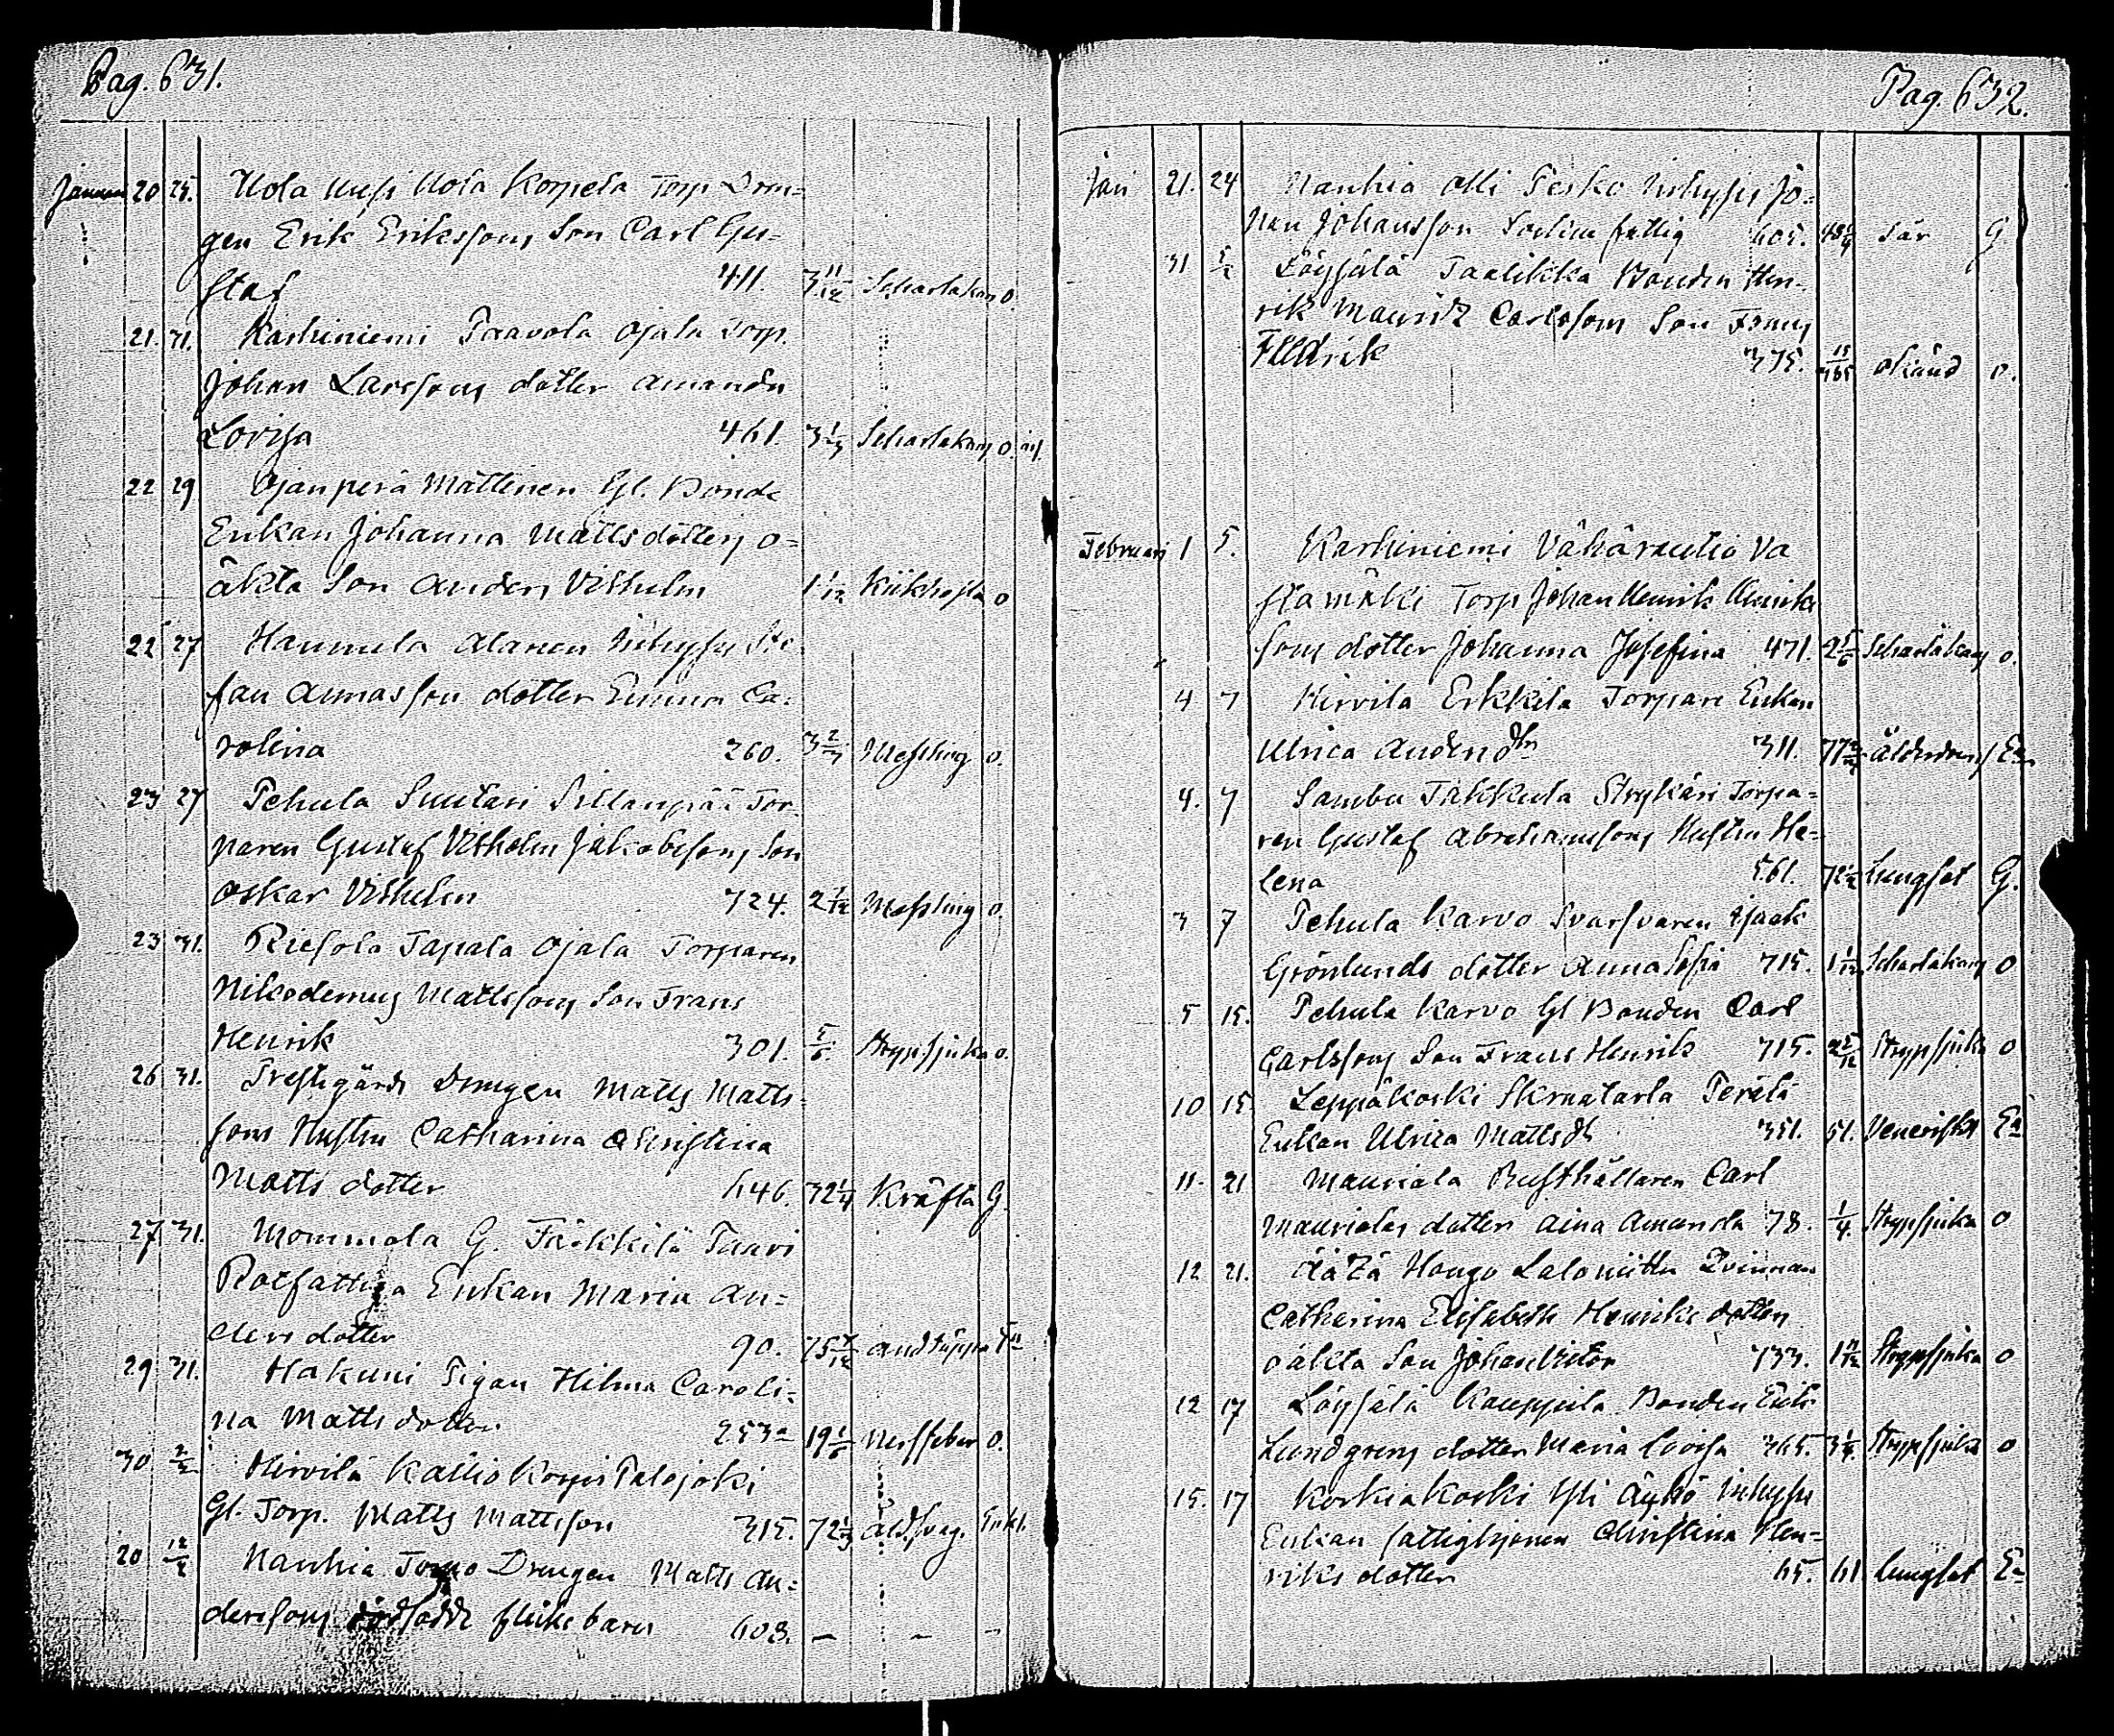 Pag. 631.
Januari 20 25. Uola Uusi Uola Korpela Torp Dren=
gen Erik Erikssons Son Carl Gu=
staf 411. 3 11/12 Scharlakan o
21. 31. Karhiniemi Paavola Ojala Torp.
Johan Larssons dotter Amanda
Lovisa 461. 3 1/3 Scharlakans o.
22 29 Ojanperä Mattinen Gl. Bonde
Enkan Johanna Mattsdotters o=
äkta Son Anders Vilhelm 1 1/12 Kikhosta o
22 27 Hannula Alanen Inhyses Ste
fan Annasson dotter Emma Ca=
rolina 260. 3 2/3 Messling o.
23 27 Pehula Suutari Sillanpää Tor=
paren Gustaf Vilhelm Jakobssons Son
Oskar Vilhelm 724. 2 1/12 Messling o.
23 31. Riesola Tapala Ojala Torparen
Nikodemus Mattssons Son Frans
Henrik 301. 5/6 Strypsjuka o.
26 31. Prestgårds Drengen Matts Matts=
sons Hustru Catharina Christina
Matts dotter 646. 32 1/4 Kräfta G.
27 31. Mommola G. Fäikkilä Paavi
Rotfattiga Enkan Maria An=
ders dotter 90. 75 andtäppa Ea
29 31. Hakuni Pigan Hilma Caroli=
na Matts dotter 253a 19 1/6 Nerffeber o.
30 2/2 Hirvilä Kallio Korpi Palojoki
Gl. Torp. Matts Mattsson 315. 72 1/3 åldsvag. Enkl.
20 12/2 Nanhia Tommo Drengen Matts An=
derssons dödfödde flicke barn 608. – – –
Pag. 632.
Jan 21. 24 Nanhia Olli Pesko Inhyses Jo=
han Johansson Soclien fattig 605. 48 Sår G
31 5/2 Löysälä Taalikka Bonden Hen=
rik Mauritz Carlssons Son Frans
Fredrik 375. 15/365 okänd o.
Februari 1 5. Karhiniemi Vähärautio Va
stamäki Torp Johan Henrik Henriks
sons dotter Johanna Josefina 471. 2 5/6 Scharlakans o.
4 7 Hirvila Erkkila Torpare Enkan
Ulrica Anders dtr 311. 77 ålderdoms Ea
4. 7 Sambu Takkula Strykäri Torpa=
ren Gustaf Abrahamssons Hustru He=
lena 561. 72 1/2 Lungsot G.
3 7 Pehula Karvo Svarfvaren Isaak
Grönlunds dotter Anna Sofia 715. 1 1/12 Scharlakans o
5 15. Pehula Karvo Gl Bonden Carl
Carlssons Son Frans Henrik 715. 2 5/12 Strypsjuka o
10 15 Leppäkoski Skraatarla Perälä
Enkan Ulrica Matts dr 351. 51. Veneriska Ea
11. 21 Mauriala Rusthållaren Carl
Maurialas dotter Aina Amanda 78. 1/4. Strypsjuka o
12 21. Säkä Hongo Lalomittu Qvinnan
Catharina Elisabeth Henriks dotters
oäkta Son Johan Victor 733. 1 11/12 Strypsjuka o
12 17 Löysälä Kauppila Bonden Erik
Lundgrens dotter Maria Lovisa 365. 3 1/4. Strypsjuka o
15. 17 Korkiakoski Yli Äykö Inhyses
Enkan fattighjonen Christina Hen=
riks dotter 65. 61 Lungsot Ea